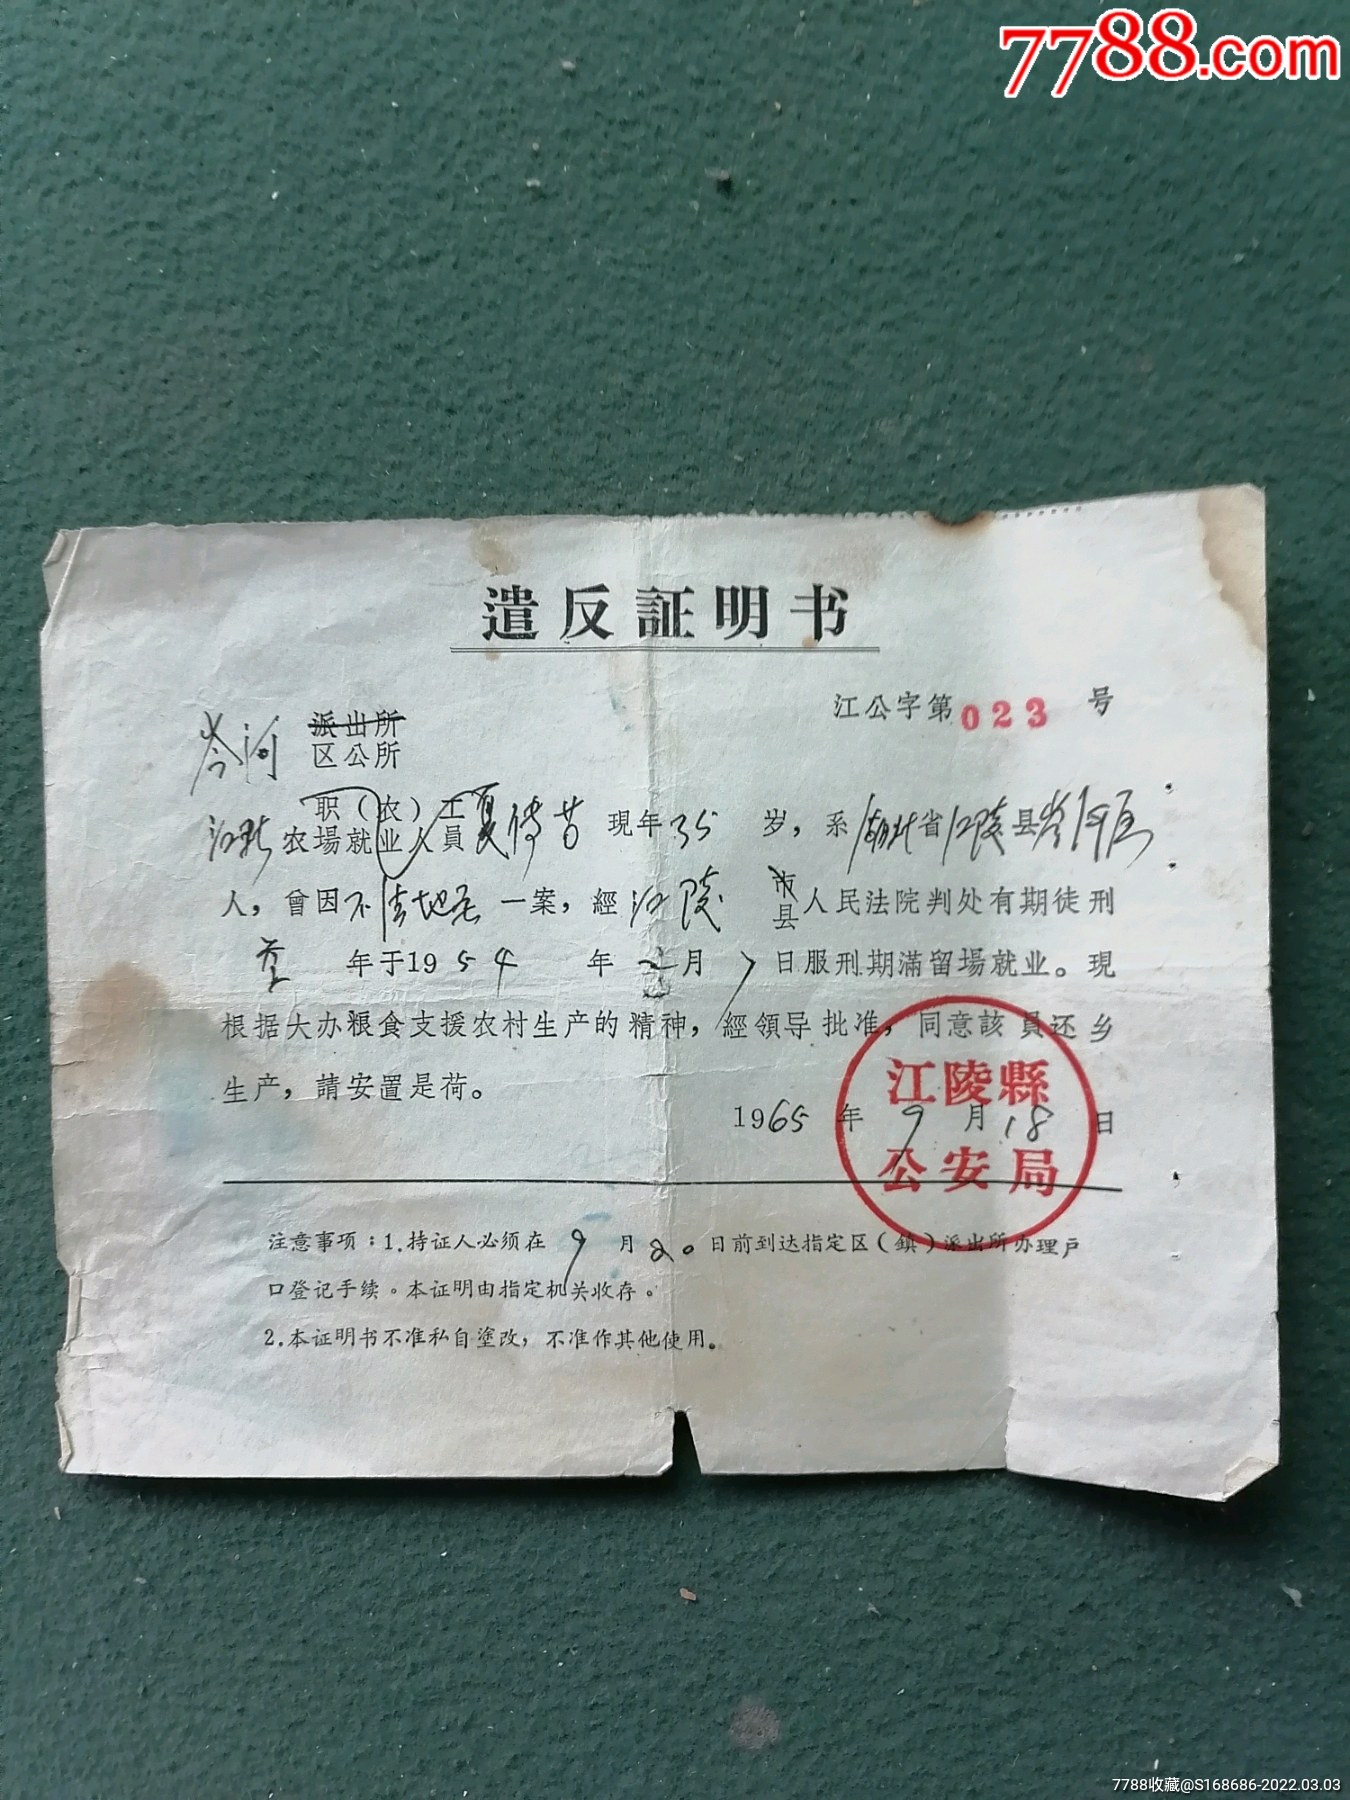 7788.com
遣反証明书
江公字第023号
岑河 派出所
区公所
职(农)工
江北农場就业人員夏传 現年35岁，系湖北省江陵县岑河区
人，曾因不法地 一案，經江陵 市
县人民法院判处有期徒刑
年于1954年 月7日服刑期滿留場就业。現
根据大办粮食支援农村生产的精神，經領导批准，同意該員还乡
生产，請安置是荷。
1965年9月18日
江陵縣
公安局
注意事项：1.持证人必须在9月20日前到达指定区(鎮)派出所办理戶
口登记手续。本证明由指定机关收存。
2.本证明书不准私自塗改，不准作其他使用。
7788收藏@S168686-2022.03.03